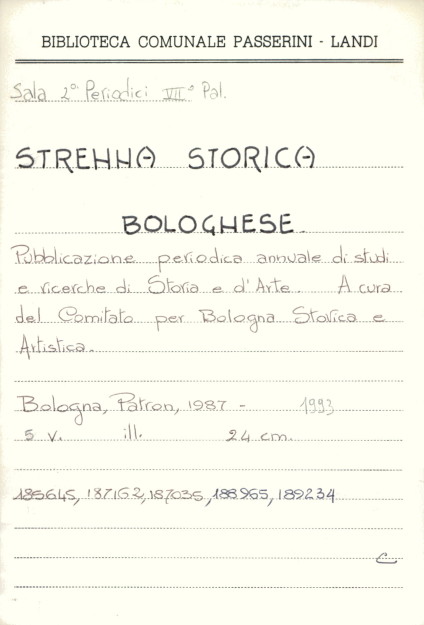 BIBLIOTECA COMUNALE PASSERINI - LANDI
Sala 2° Periodici VII° Pal.
STRENNA STORICA
BOLOGNESE.
Pubblicazione periodica annuale di studi
e ricerche di Storia e d'Arte. A cura
del Comitato per Bologna Storica e
Artistica.
Bologna, Patron, 1987 - 1993
5 v. ill. 24 cm.
185645, 187162, 187035, 188965, 189234
C